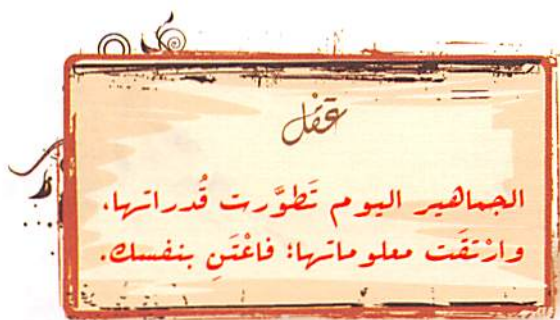 عقل
الجماهير اليوم تَطوَّرت قُدراتها،
وارْتقَت معلوماتها؛ فاعْتَنِ بنفسك.